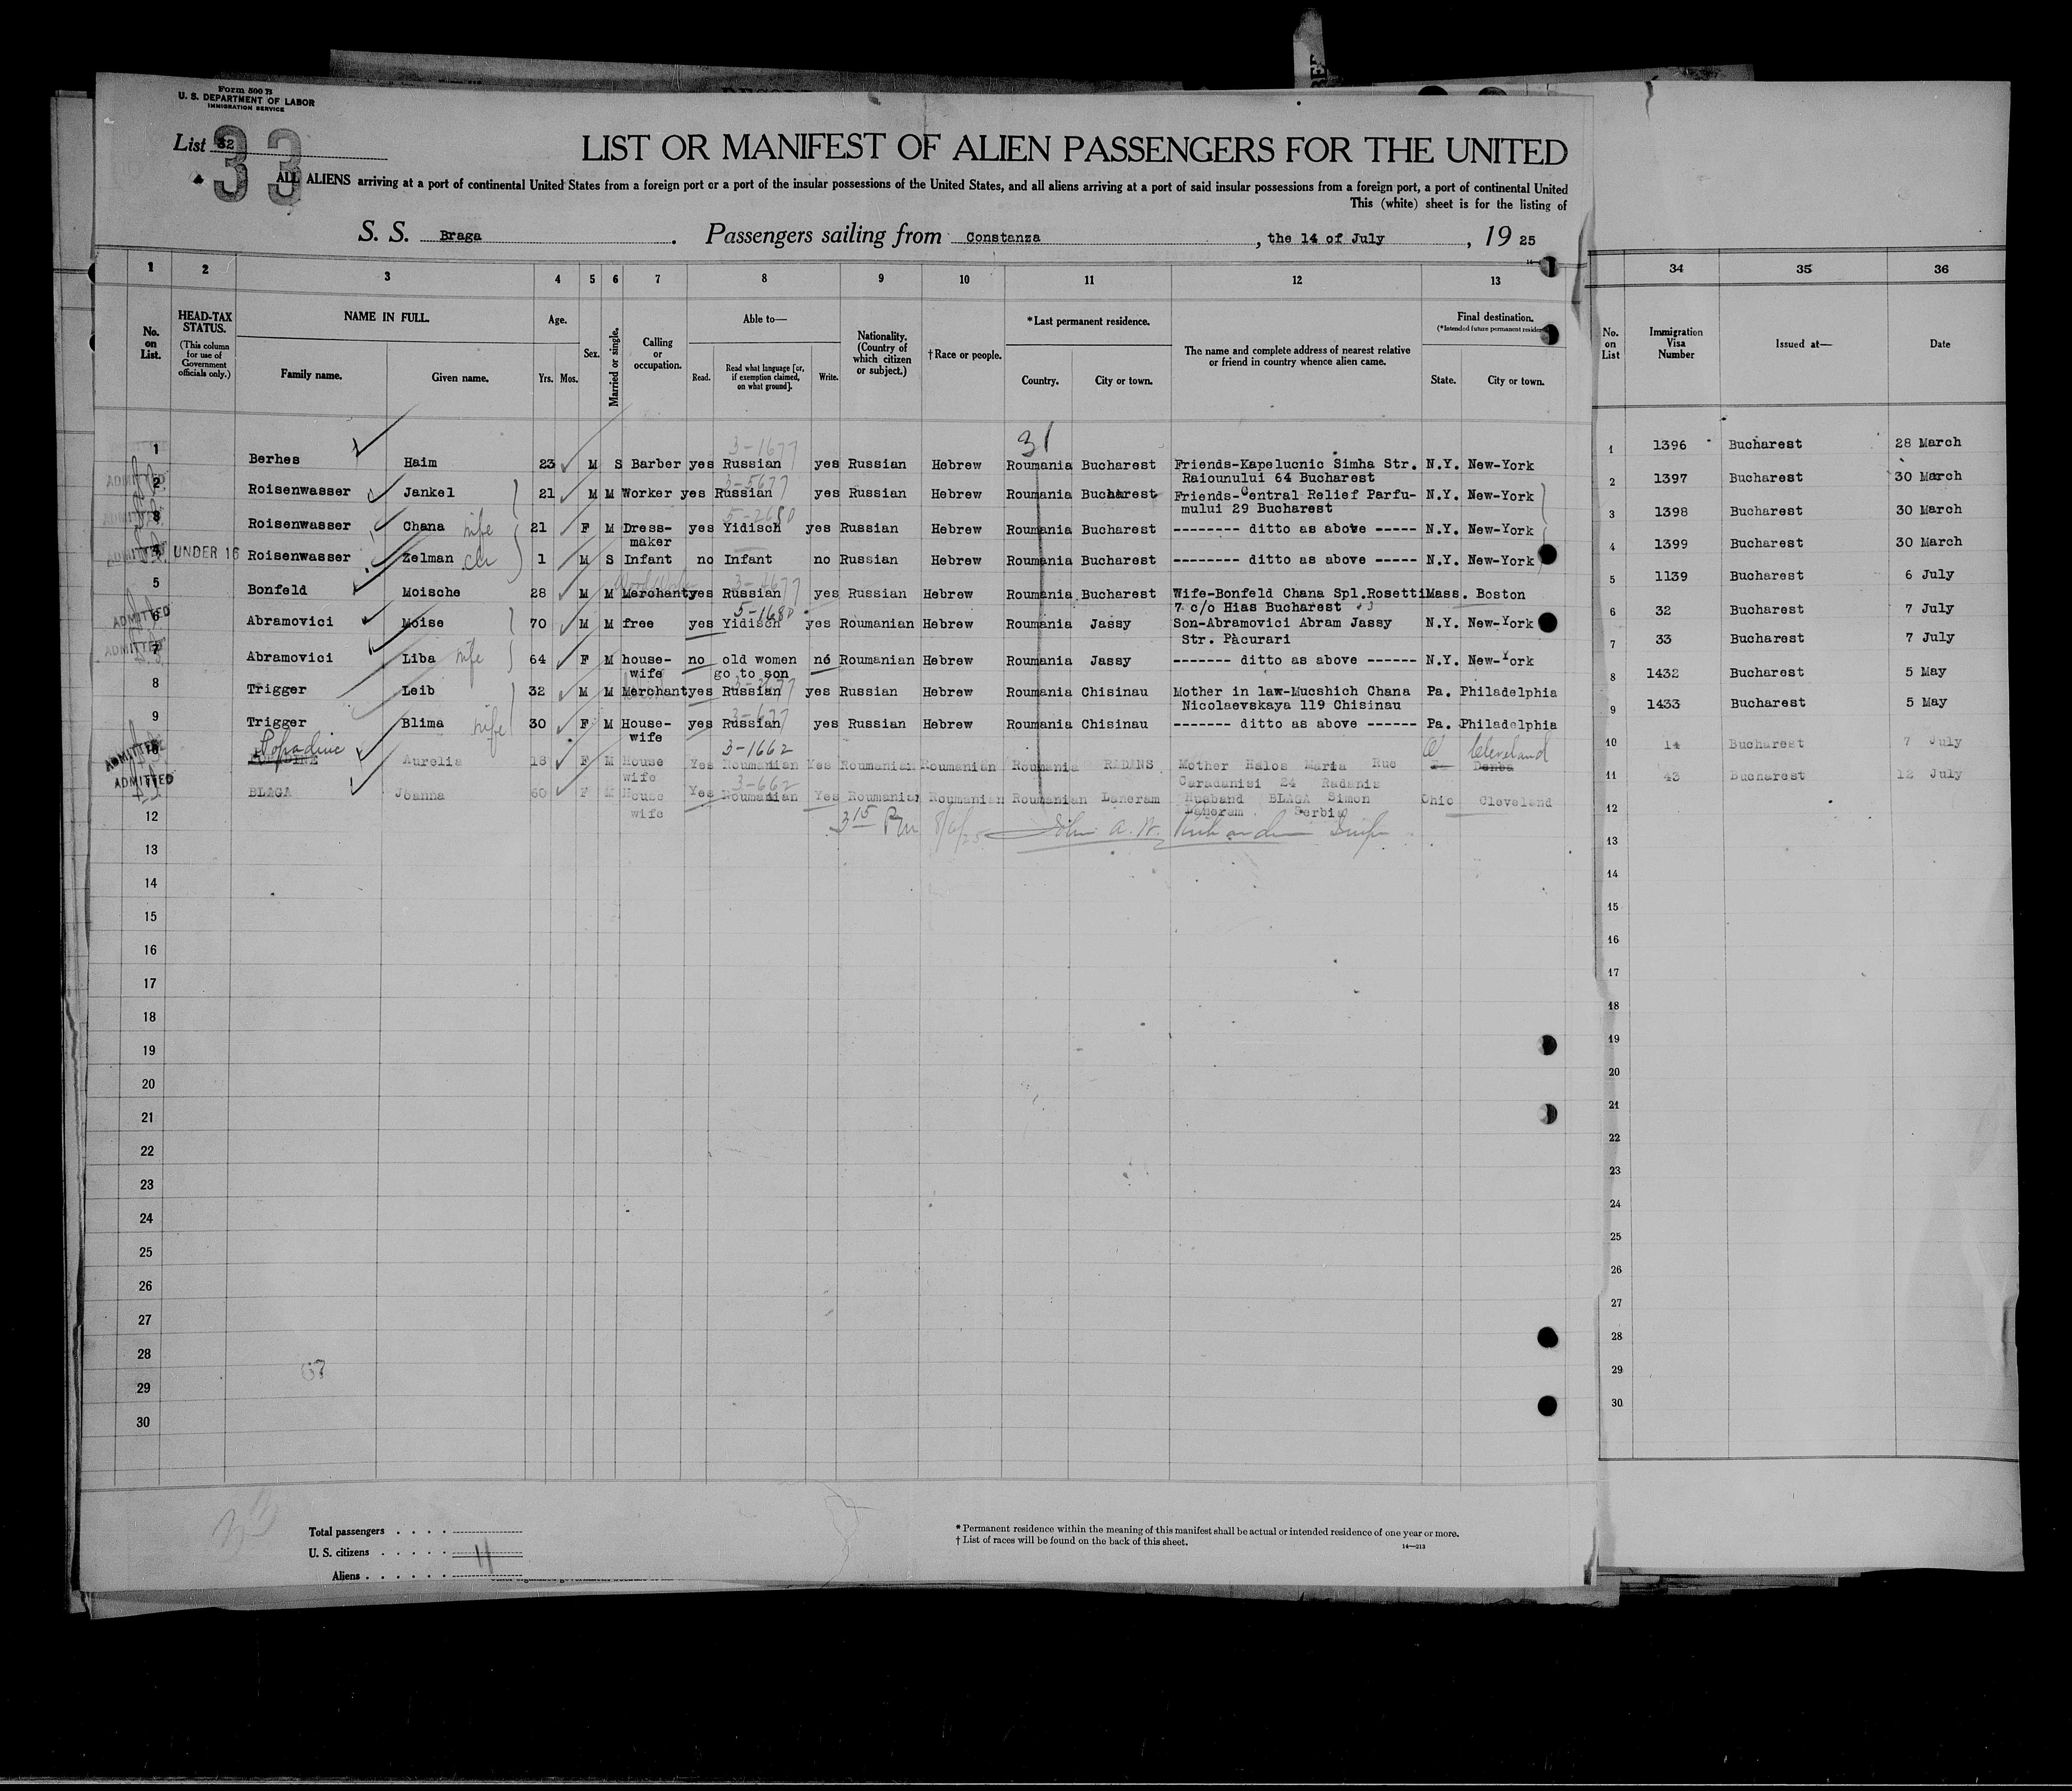 Form 500 B
U. S. DEPARTMENT OF LABOR
IMMIGRATION SERVICE
List 32
33
LIST OR MANIFEST OF ALIEN PASSENGERS FOR THE UNITED
ALL ALIENS arriving at a port of continental United States from a foreign port or a port of the insular possessions of the United States, and all aliens arriving at a port of said insular possessions from a foreign port, a port of continental United
This (white) sheet is for the listing of
S. S. Braga . Passengers sailing from Constanza , the 14 of July , 19 25
1 2 3 4 5 6 7 8 9 10 11 12 13 34 35 36
No. on List.
HEAD-TAX STATUS.
(This column for use of Government officials only.)
NAME IN FULL.
Family name. Given name.
Age.
Yrs. Mos.
Sex.
Married or single.
Calling or occupation.
Able to—
Read. Read what language [or, if exemption claimed, on what ground]. Write.
Nationality. (Country of which citizen or subject.)
†Race or people.
*Last permanent residence.
Country. City or town.
The name and complete address of nearest relative or friend in country whence alien came.
Final destination.
(*Intended future permanent residence
State. City or town.
No. on List
Immigration Visa Number
Issued at—
Date
31
3-1677
1 Berhes Haim 23 M S Barber yes Russian yes Russian Hebrew Roumania Bucharest Friends-Kapelucnic Simha Str. N.Y. New-York 1 1396 Bucharest 28 March
Raiounului 64 Bucharest
ADMITTED 2 Roisenwasser Jankel 21 M M Worker yes Russian yes Russian Hebrew Roumania Bucharest Friends-Central Relief Parfu- N.Y. New-York 2 1397 Bucharest 30 March
mului 29 Bucharest
5-2680
ADMITTED 3 Roisenwasser Chana wife 21 F M Dress- yes Yidisch yes Russian Hebrew Roumania Bucharest -------- ditto as above ----- N.Y. New-York 3 1398 Bucharest 30 March
maker
ADMITTED 4 UNDER 16 Roisenwasser Zelman 1 M S Infant no Infant no Russian Hebrew Roumania Bucharest -------- ditto as above ----- N.Y. New-York 4 1399 Bucharest 30 March
5 Bonfeld Moische 28 M M Merchant yes Russian yes Russian Hebrew Roumania Bucharest Wife-Bonfeld Chana Spl.Rosetti Mass. Boston 5 1139 Bucharest 6 July
7 c/o Hias Bucharest
5-1680
ADMITTED 6 Abramovici Moise 70 M M free yes Yidisch yes Roumanian Hebrew Roumania Jassy Son-Abramovici Abram Jassy N.Y. New-York 6 32 Bucharest 7 July
Str. Pacurari
ADMITTED 7 Abramovici Liba wife 64 F M house- no old women no Roumanian Hebrew Roumania Jassy ------- ditto as above ------ N.Y. New-York 7 33 Bucharest 7 July
wife go to son
8 Trigger Leib 32 M M Merchant yes Russian yes Russian Hebrew Roumania Chisinau Mother in law-Mucshich Chana Pa. Philadelphia 8 1432 Bucharest 5 May
Nicolaevskaya 119 Chisinau
9 Trigger Blima wife 30 F M House- yes Russian yes Russian Hebrew Roumania Chisinau ------- ditto as above ------ Pa. Philadelphia 9 1433 Bucharest 5 May
wife
Popadinc 3-1662 O Cleveland
ADMITTED 10 Aurelia 18 F M House Yes Roumanian Yes Roumanian Roumanian Roumania RADANS Mother Halos Maria Rue 10 14 Bucharest 7 July
wife Caradanisi 24 Radanis
3-662
ADMITTED 11 BLAGA Joanna 60 F M House Yes Roumanian Yes Roumanian Roumanian Roumanian Laneram Husband BLAGA Simon Ohio Cleveland 11 43 Bucharest 12 July
wife Laneram Serbia
12 3 15 Pm 8/6/25 John A. W. 12
13 13
14 14
15 15
16 16
17 17
18 18
19 19
20 20
21 21
22 22
23 23
24 24
25 25
26 26
27 27
28 28
29 29
30 30
Total passengers
U. S. citizens
11
Aliens
* Permanent residence within the meaning of this manifest shall be actual or intended residence of one year or more.
† List of races will be found on the back of this sheet.
14—213